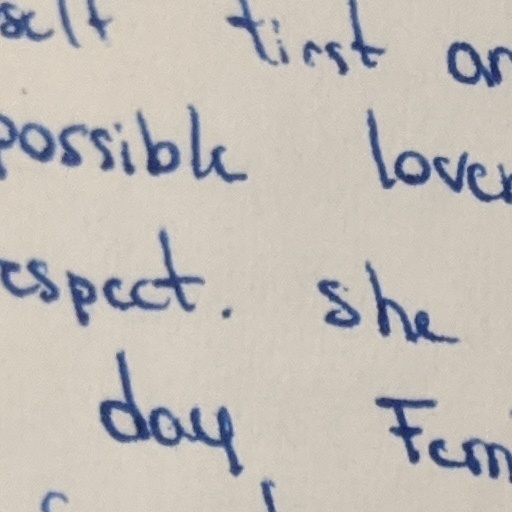 self first an
possible lover
espect. she
day Fem